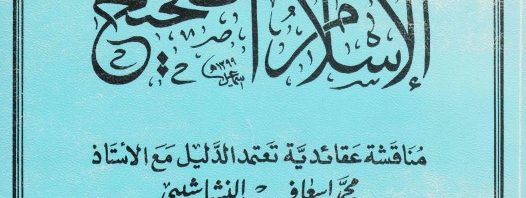 الإسلام الصحيح
مُنَاقشَة عَقائديَّة تَعتمد الدَّليل مَعَ الأسْتَاذ
محمّد إسعاف النشاشيبي